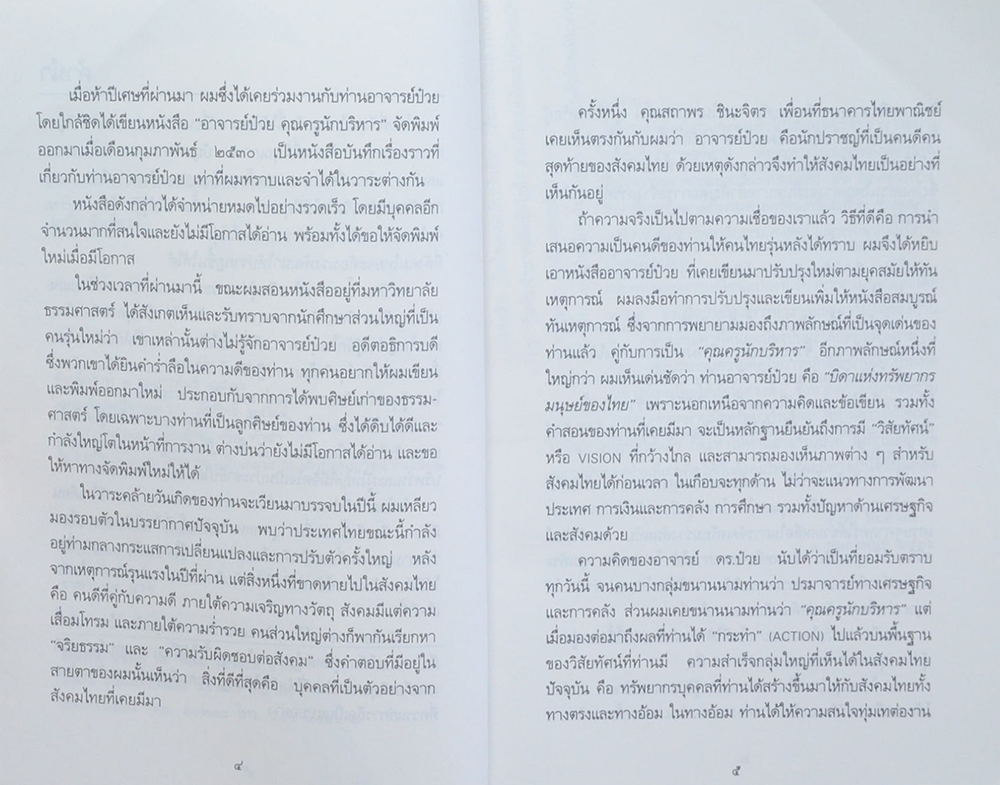 เมื่อห้าปีเศษที่ผ่านมา ผมซึ่งได้เคยร่วมงานกับท่านอาจารย์ป๋วย
โดยใกล้ชิดได้เขียนหนังสือ "อาจารย์ป๋วย คุณครูนักบริหาร" จัดพิมพ์
ออกมาเมื่อเดือนกุมภาพันธ์ ๒๕๓๐ เป็นหนังสือบันทึกเรื่องราวที่
เกี่ยวกับท่านอาจารย์ป๋วย เท่าที่ผมทราบและจำได้ในวาระต่างกัน
หนังสือดังกล่าวได้จำหน่ายหมดไปอย่างรวดเร็ว โดยมีบุคคลอีก
จำนวนมากที่สนใจและยังไม่มีโอกาสได้อ่าน พร้อมทั้งได้ขอให้จัดพิมพ์
ใหม่เมื่อมีโอกาส
ในช่วงเวลาที่ผ่านมานี้ ขณะผมสอนหนังสืออยู่ที่มหาวิทยาลัย
ธรรมศาสตร์ ได้สังเกตเห็นและรับทราบจากนักศึกษาส่วนใหญ่ที่เป็น
คนรุ่นใหม่ว่า เขาเหล่านั้นต่างไม่รู้จักอาจารย์ป๋วย อดีตอธิการบดี
ซึ่งพวกเขาได้ยินคำร่ำลือในความดีของท่าน ทุกคนอยากให้ผมเขียน
และพิมพ์ออกมาใหม่ ประกอบกับจากการได้พบศิษย์เก่าของธรรม-
ศาสตร์ โดยเฉพาะบางท่านที่เป็นลูกศิษย์ของท่าน ซึ่งได้ดิบได้ดีและ
กำลังใหญ่โตในหน้าที่การงาน ต่างบ่นว่ายังไม่มีโอกาสได้อ่าน และขอ
ให้หาทางจัดพิมพ์ใหม่ให้ได้
ในวาระคล้ายวันเกิดของท่านจะเวียนมาบรรจบในปีนี้ ผมเหลียว
มองรอบตัวในบรรยากาศปัจจุบัน พบว่าประเทศไทยขณะนี้กำลัง
อยู่ท่ามกลางกระแสการเปลี่ยนแปลงและการปรับตัวครั้งใหญ่ หลัง
จากเหตุการณ์รุนแรงในปีที่ผ่าน แต่สิ่งหนึ่งที่ขาดหายไปในสังคมไทย
คือ คนดีที่คู่กับความดี ภายใต้ความเจริญทางวัตถุ สังคมมีแต่ความ
เสื่อมโทรม และภายใต้ความร่ำรวย คนส่วนใหญ่ต่างก็พากันเรียกหา
"จริยธรรม" และ "ความรับผิดชอบต่อสังคม" ซึ่งคำตอบที่มีอยู่ใน
สายตาของผมนั้นเห็นว่า สิ่งที่ดีที่สุดคือ บุคคลที่เป็นตัวอย่างจาก
สังคมไทยที่เคยมีมา
๔
ครั้งหนึ่ง คุณสถาพร ชินะจิตร เพื่อนที่ธนาคารไทยพาณิชย์
เคยเห็นตรงกันกับผมว่า อาจารย์ป๋วย คือนักปราชญ์ที่เป็นคนดีคน
สุดท้ายของสังคมไทย ด้วยเหตุดังกล่าวจึงทำให้สังคมไทยเป็นอย่างที่
เห็นกันอยู่
ถ้าความจริงเป็นไปตามความเชื่อของเราแล้ว วิธีที่ดีคือ การนำ
เสนอความเป็นคนดีของท่านให้คนไทยรุ่นหลังได้ทราบ ผมจึงได้หยิบ
เอาหนังสืออาจารย์ป๋วย ที่เคยเขียนมาปรับปรุงใหม่ตามยุคสมัยให้ทัน
เหตุการณ์ ผมลงมือทำการปรับปรุงและเขียนเพิ่มให้หนังสือสมบูรณ์
ทันเหตุการณ์ ซึ่งจากการพยายามมองถึงภาพลักษณ์ที่เป็นจุดเด่นของ
ท่านแล้ว คู่กับการเป็น "คุณครูนักบริหาร" อีกภาพลักษณ์หนึ่งที่
ใหญ่กว่า ผมเห็นเด่นชัดว่า ท่านอาจารย์ป๋วย คือ "บิดาแห่งทรัพยากร
มนุษย์ของไทย" เพราะนอกเหนือจากความคิดและข้อเขียน รวมทั้ง
คำสอนของท่านที่เคยมีมา จะเป็นหลักฐานยืนยันถึงการมี "วิสัยทัศน์"
หรือ VISION ที่กว้างไกล และสามารถมองเห็นภาพต่าง ๆ สำหรับ
สังคมไทยได้ก่อนเวลา ในเกือบจะทุกด้าน ไม่ว่าจะแนวทางการพัฒนา
ประเทศ การเงินและการคลัง การศึกษา รวมทั้งปัญหาด้านเศรษฐกิจ
และสังคมด้วย
ความคิดของอาจารย์ ดร.ป๋วย นับได้ว่าเป็นที่ยอมรับตราบ
ทุกวันนี้ จนคนบางกลุ่มขนานนามท่านว่า ปรมาจารย์ทางเศรษฐกิจ
และการคลัง ส่วนผมเคยขนานนามท่านว่า "คุณครูนักบริหาร" แต่
เมื่อมองต่อมาถึงผลที่ท่านได้ "กระทำ" (ACTION) ไปแล้วบนพื้นฐาน
ของวิสัยทัศน์ที่ท่านมี ความสำเร็จกลุ่มใหญ่ที่เห็นได้ในสังคมไทย
ปัจจุบัน คือ ทรัพยากรบุคคลที่ท่านได้สร้างขึ้นมาให้กับสังคมไทยทั้ง
ทางตรงและทางอ้อม ในทางอ้อม ท่านได้ให้ความสนใจทุ่มเทต่องาน
๕